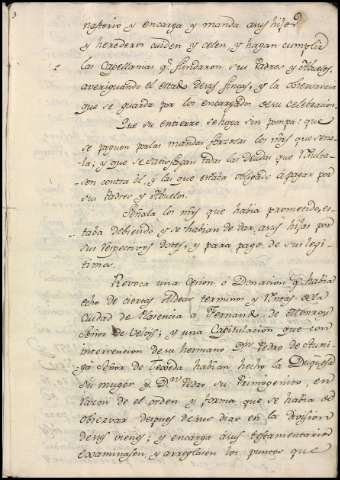 natorio y encarga y manda a sus hijos
y heredero cuiden y celen y hagan cumplir
las Capellanias q.e fundaron sus Padres y Abuelos,
averiguando el estado de sus fincas, y la observancia
que se guarda por los encargados de su celebracion
Que su entierro se haga sin pompa: que
se paguen por las mandas forzosas los mrs que seña-
la; y que se satisfagan todas las deudas que resulta-
sen contra él, y las que estaba obligado a pagar por
sus Padres y Abuelos.
Señala los mrs que habia prometido, es-
taba debiendo y se habian de dar, a sus hijas por
sus respectivos dotes, y para pago de sus legi-
timas.
Revoca una Cesion ó Donacion q.e habia
echo de ciertas Aldeas termino y Rentas de la
Ciudad de Plasencia a Fernand.o de Monroy
Señor de Velvis; y una Capitulacion que con
intervencion de su hermano D.n Pedro de Zuñi-
ga Señor de habian hecho la Duquesa
su muger y D.n Pedro su Primogenito, en
razon de el orden y forma que se habia de
observar despues de sus dias en la division
de sus vienes; y encarga a sus testamentarios
examinasen, y arreglasen los puntos que